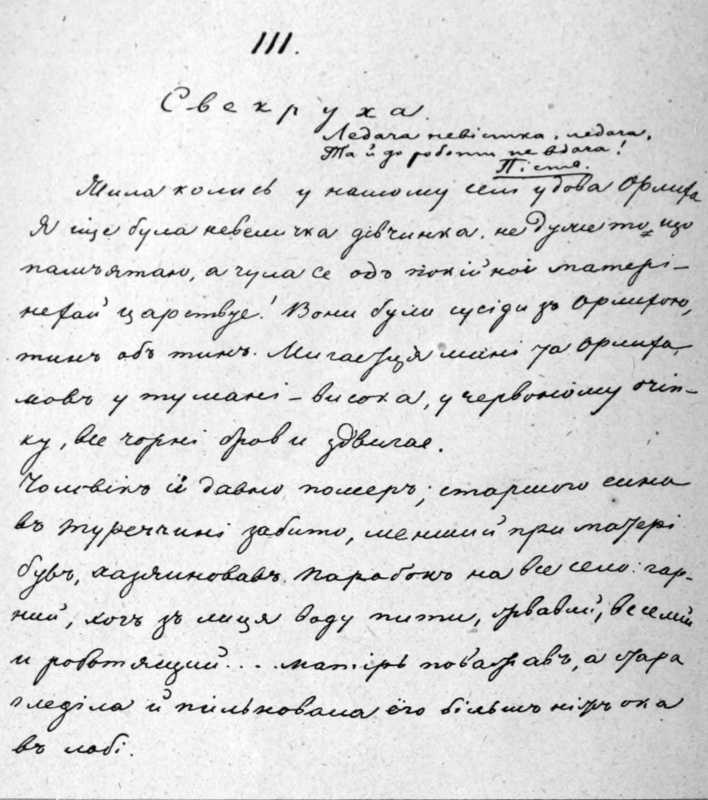 III.
Свекруха.
Ледача невістка, ледача,
Та й до роботи не вдача!
Пісня.
Жила колись у нашому селі удова Орлиха
Я іще була невеличка дівчинка, не дуже то що
памъятаю, а чула се одъ покійної матері –
нехай царствує! Вони були сусіди зъ Орлихою,
тинъ объ тинъ. Мигаетця мині та Орлиха,
мовъ у тумані – висока, у червоному очіп-
ку, все чорні брови здвигае.
Чоловікъ ій давно померъ; старшого сина
въ Туреччині забито, менший при матері
бувъ, хазяиновавъ. Парабокъ на все село: гар-
ний, хочъ зъ лиця воду пити, жвавий, веселий
и роботящий... матірь поважавъ, а стара
гледіла й пильновала ёго більшъ ніжъ ока
въ лобі.